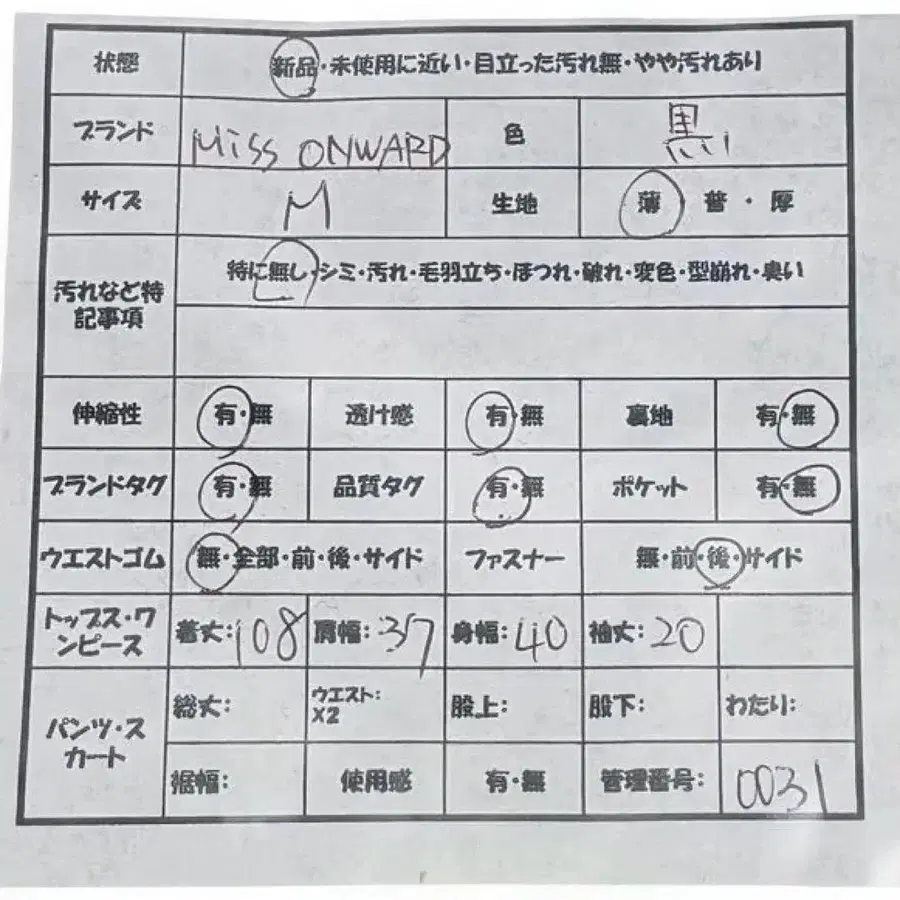 状態 新品・未使用に近い・目立った汚れ無・やや汚れあり
ブランド MiSS ONWARD 色 黒
サイズ M 生地 薄・普・厚
汚れなど特記事項 特に無し・シミ・汚れ・毛羽立ち・ほつれ・破れ・変色・型崩れ・臭い
伸縮性 有・無 透け感 有・無 裏地 有・無
ブランドタグ 有・無 品質タグ 有・無 ポケット 有・無
ウエストゴム 無・全部・前・後・サイド ファスナー 無・前・後・サイド
トップス・ワンピース 着丈:108 肩幅:37 身幅:40 袖丈:20
パンツ・スカート 総丈: ウエスト:X2 股上: 股下: わたり:
裾幅: 使用感 有・無 管理番号: 0031